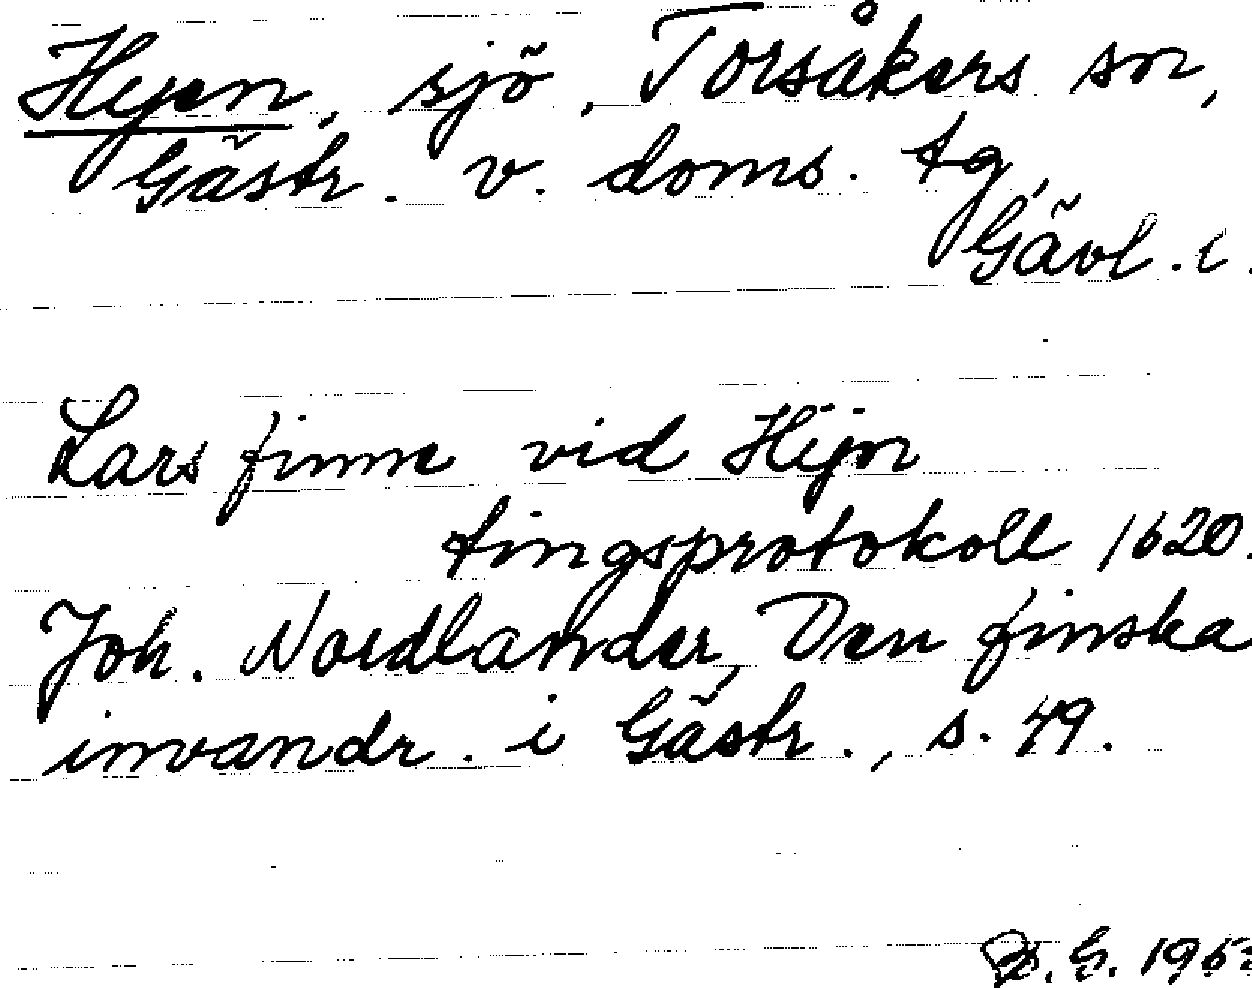 Hyen, sjö, Torsåkers sn,
Gästr. v. doms. tg,
Gävl. l.
Lars finne vid Hijn
tingsprotokoll 1620.
Joh. Nordlander, Den finska
invandr. i Gästr., s. 49.
G. 196